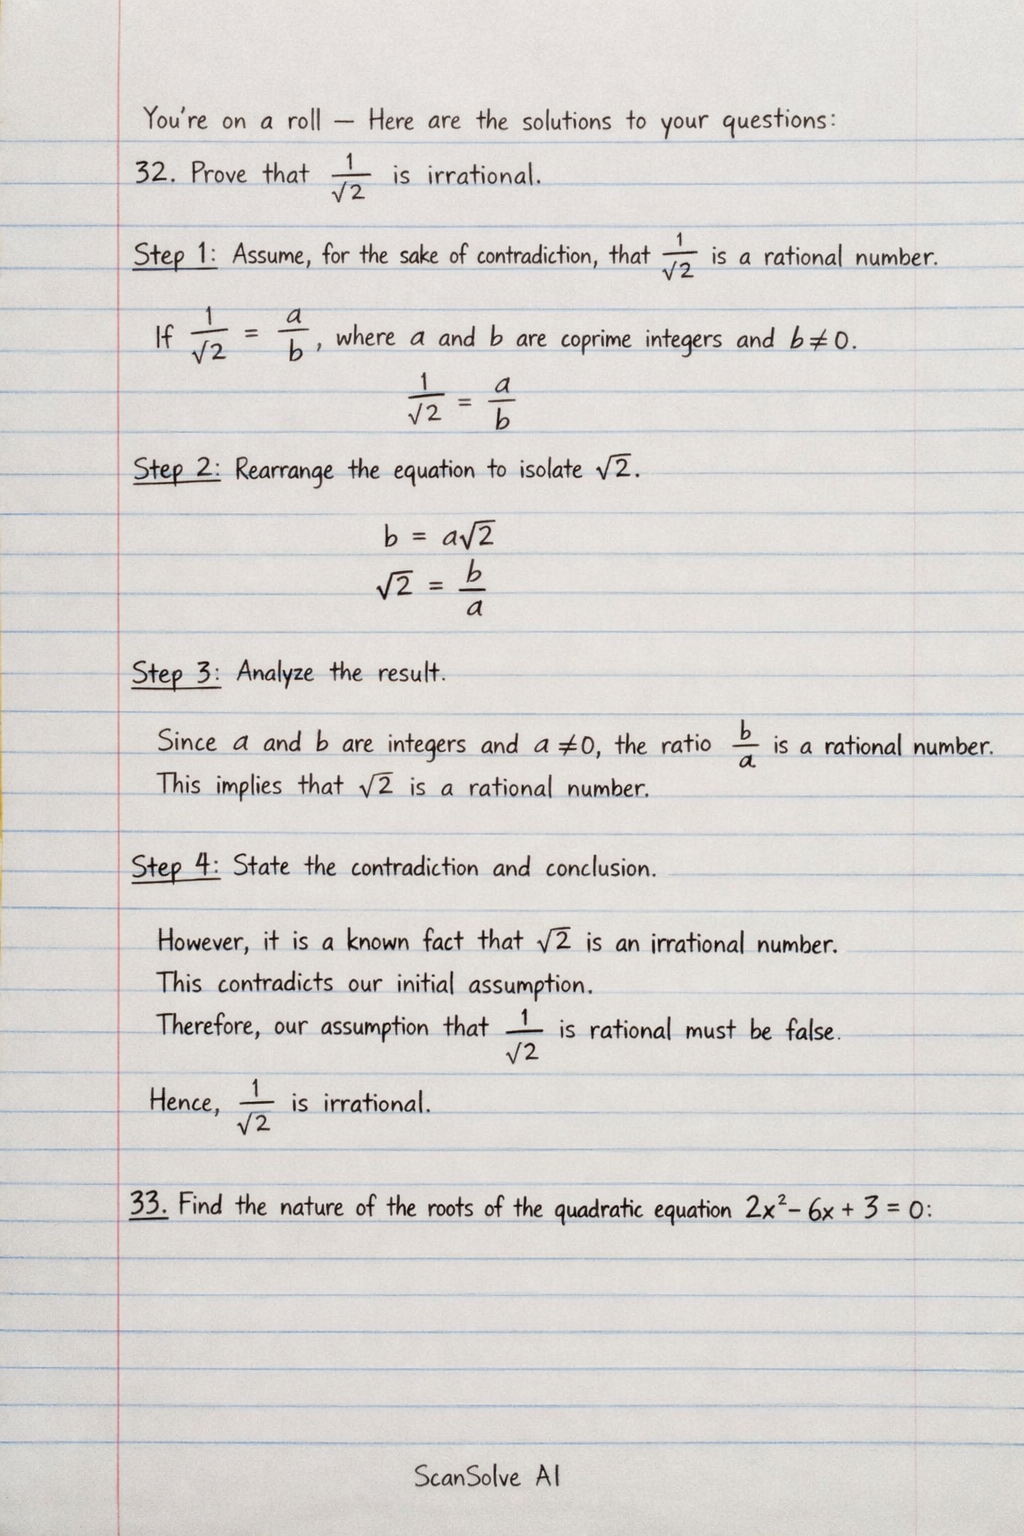 You're on a roll — Here are the solutions to your questions:
32. Prove that 1/√2 is irrational.
Step 1: Assume, for the sake of contradiction, that 1/√2 is a rational number.
If 1/√2 = a/b, where a and b are coprime integers and b ≠ 0.
1/√2 = a/b
Step 2: Rearrange the equation to isolate √2.
b = a√2
√2 = b/a
Step 3: Analyze the result.
Since a and b are integers and a ≠ 0, the ratio b/a is a rational number.
This implies that √2 is a rational number.
Step 4: State the contradiction and conclusion.
However, it is a known fact that √2 is an irrational number.
This contradicts our initial assumption.
Therefore, our assumption that 1/√2 is rational must be false.
Hence, 1/√2 is irrational.
33. Find the nature of the roots of the quadratic equation 2x² - 6x + 3 = 0:
ScanSolve AI